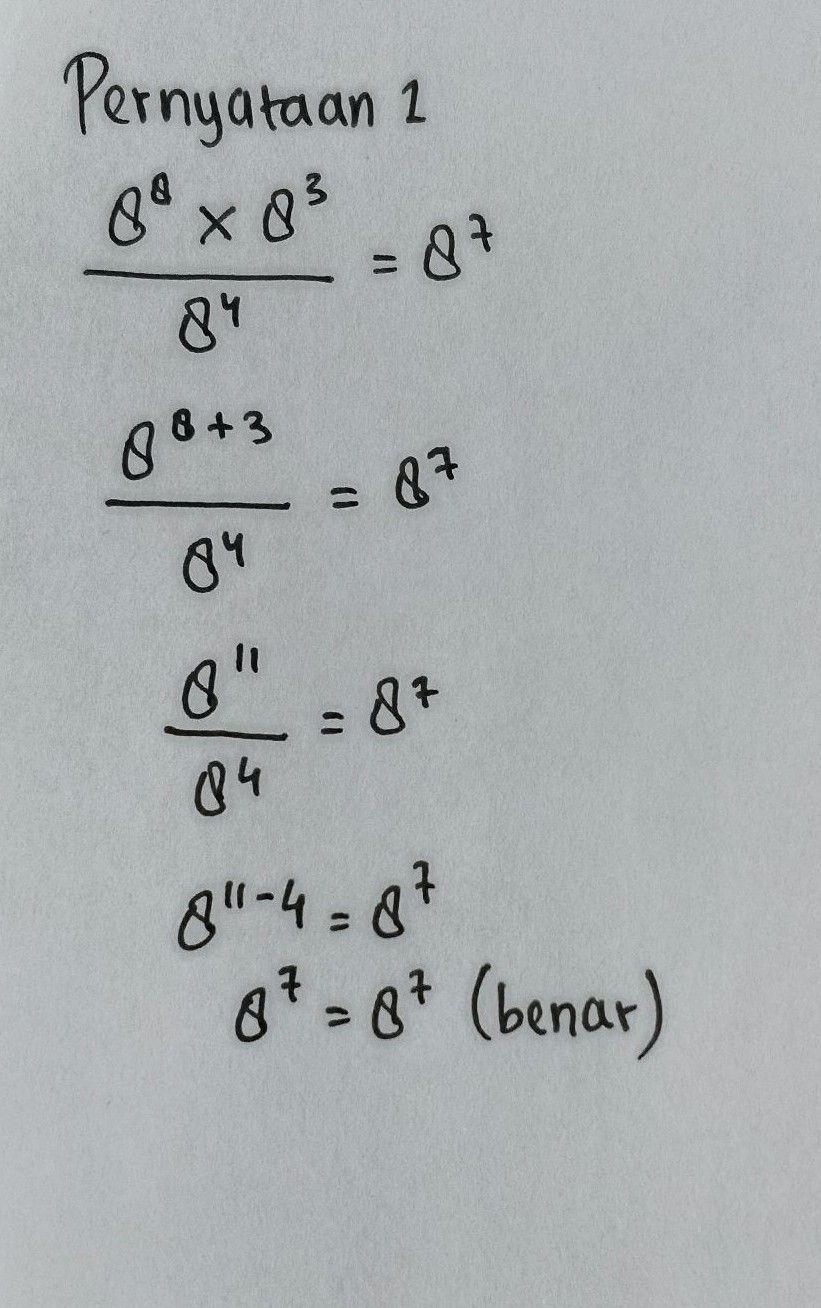 Pernyataan 1
8⁸ × 8³ / 8⁴ = 8⁷
8⁸⁺³ / 8⁴ = 8⁷
8¹¹ / 8⁴ = 8⁷
8¹¹⁻⁴ = 8⁷
8⁷ = 8⁷ (benar)